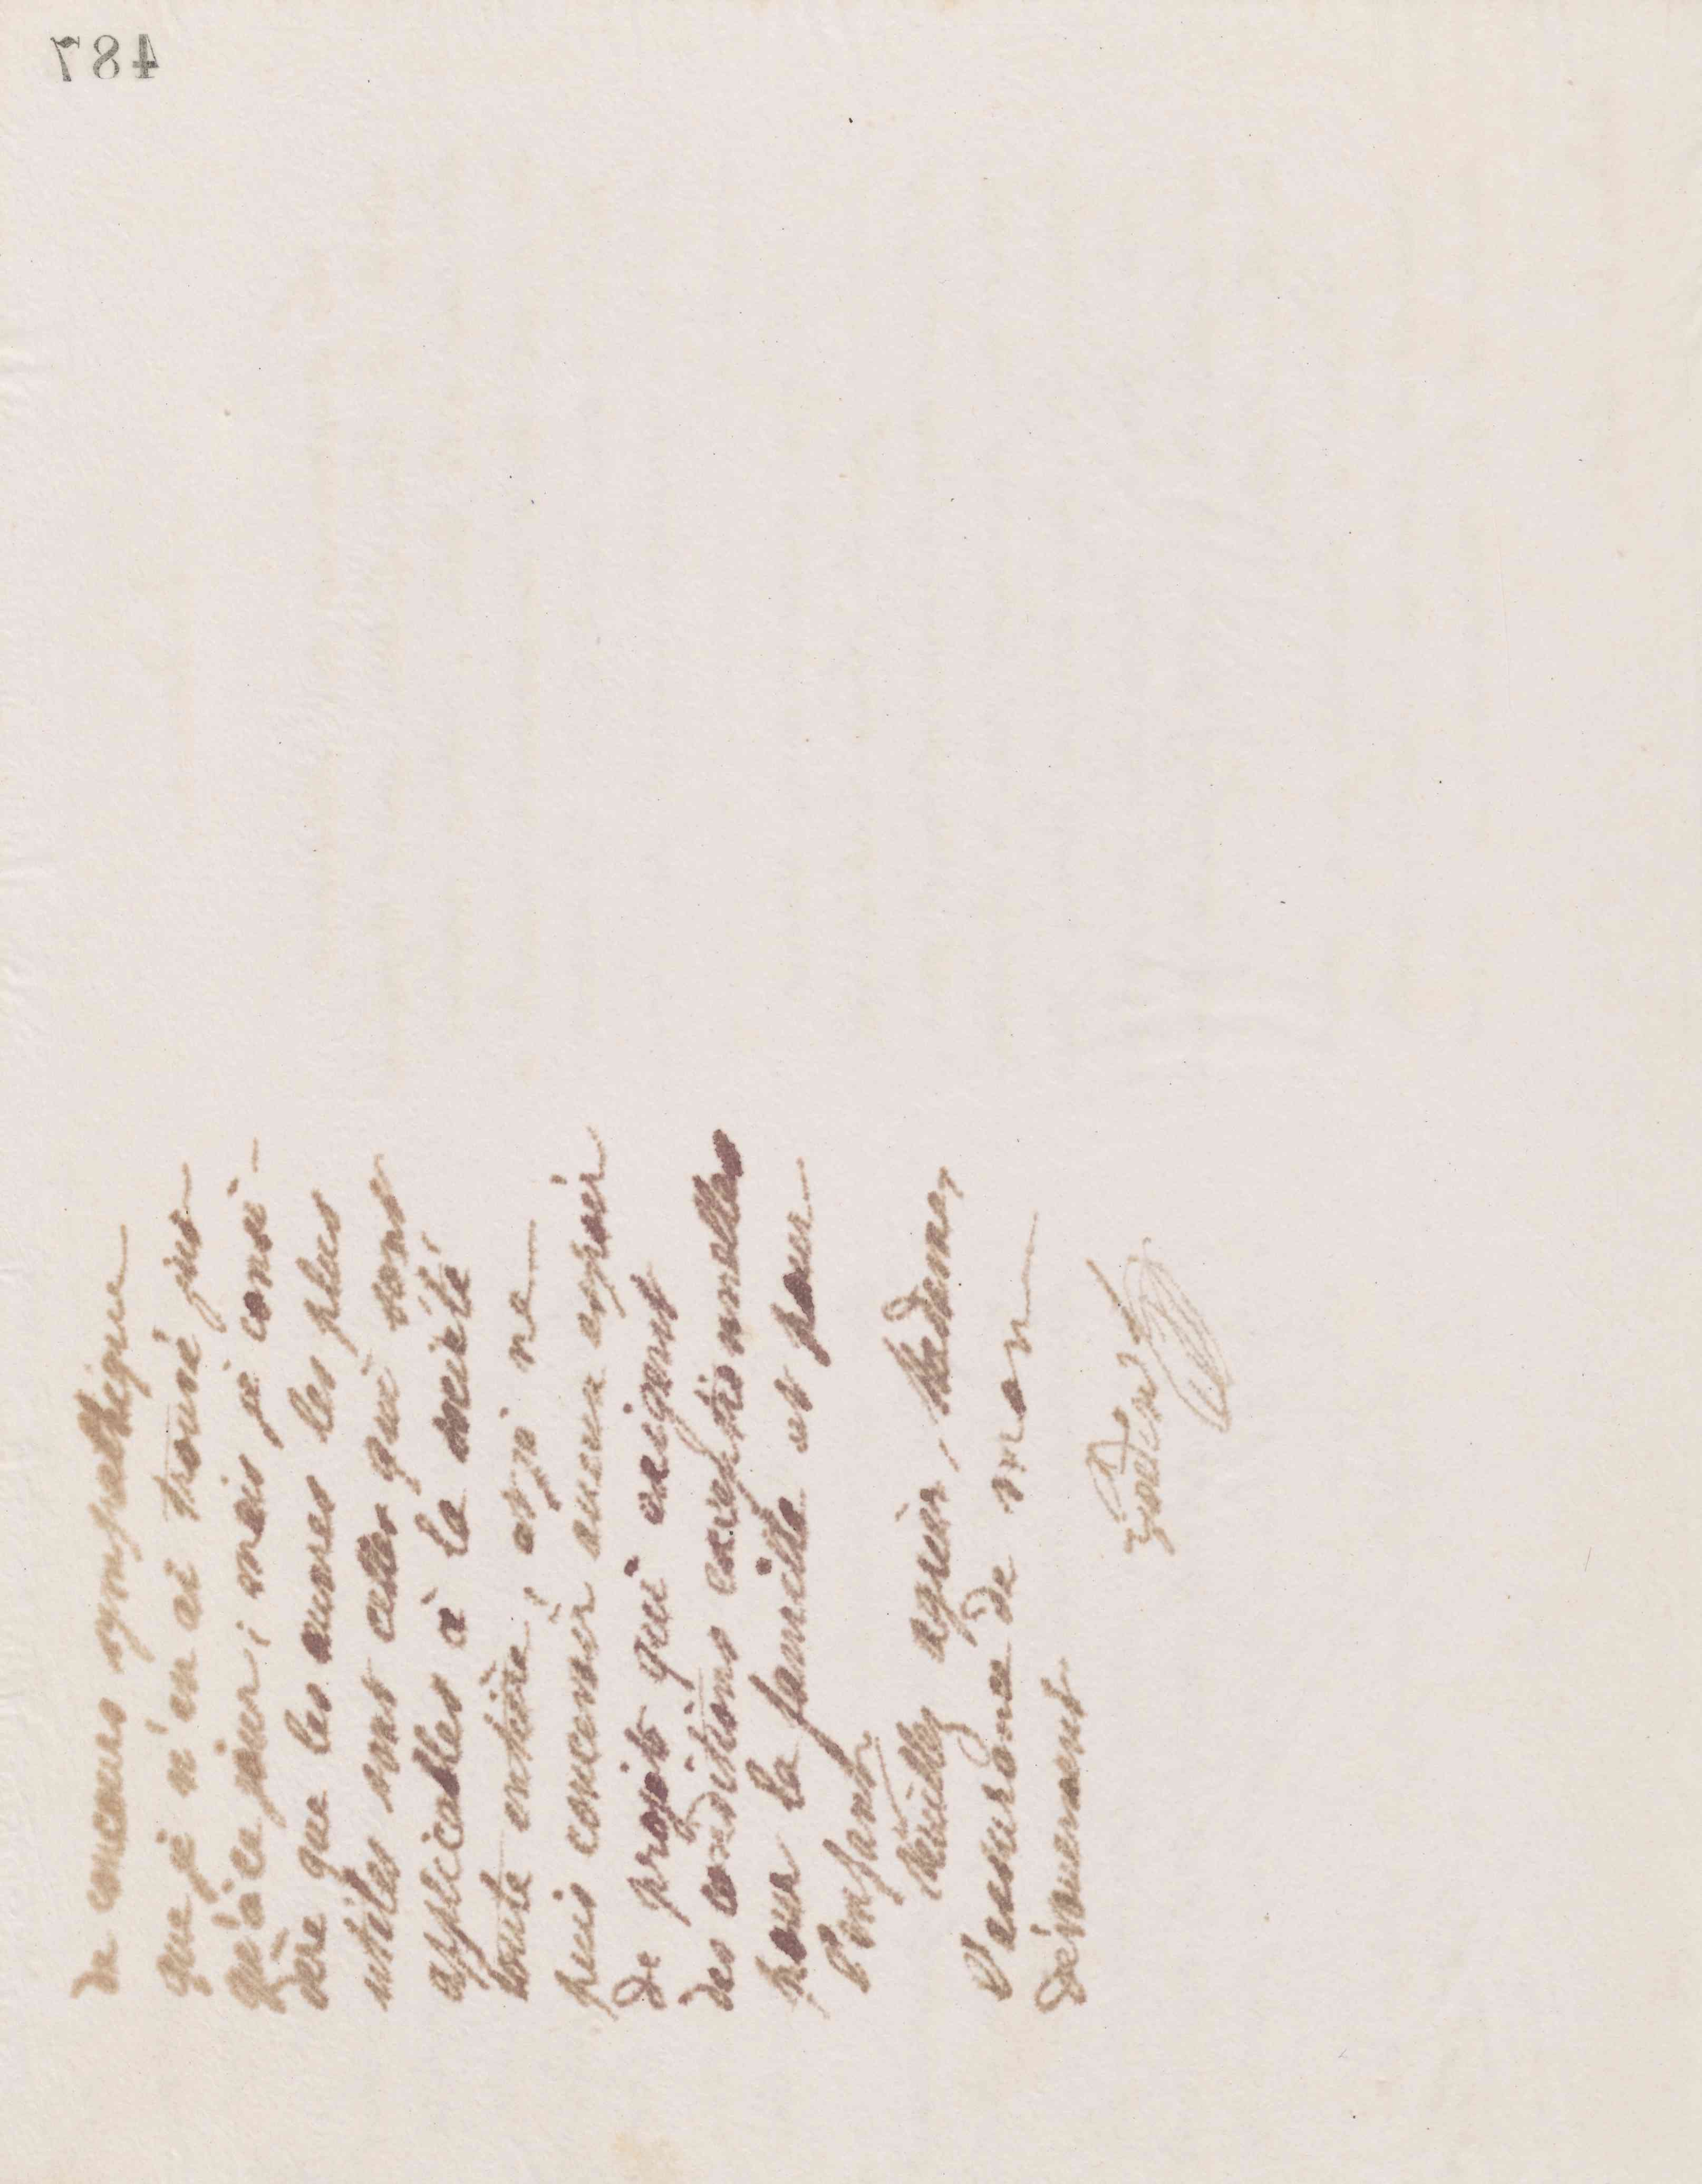 487
de concours sympathique
que je n'en ai trouvé jus
qu'à ce jour ; mais je consi-
dère que les œuvres les plus
utiles sont celles qui sont
applicables à la société
toute entière, et je ne
puis concevoir aucun espoir
de projets qui exigent
des conditions exceptionnelles
pour la famille et pour
l'enfant.
Veuillez agréer, Madame,
l'assurance de mon
dévouement
Godin